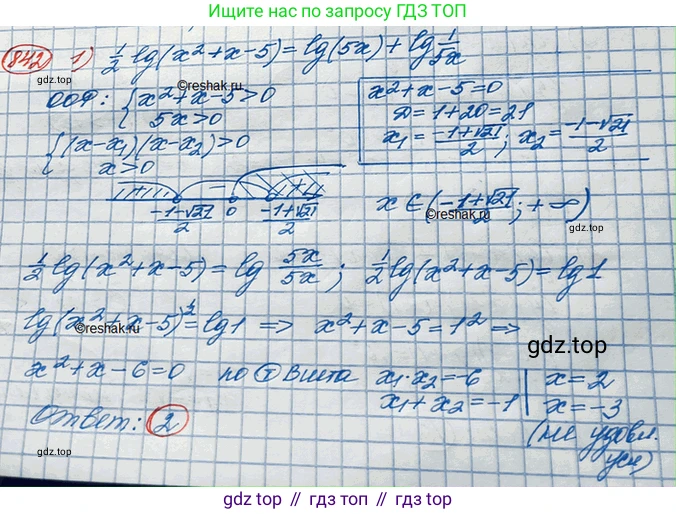 Больше решений по запросу ГДЗ ТОП
842 1) 1/2 lg(x²+x-5) = lg(5x) + lg 1/5x
gdz.top ©reshak.ru
ООФ: { x²+x-5>0
5x>0
{ (x-x₁)(x-x₂)>0
x>0
x²+x-5=0
D=1+20=21
x₁ = (-1+√21)/2; x₂ = (-1-√21)/2
+ - +
(-1-√21)/2 0 (-1+√21)/2
x ∈ ((-1+√21)/2; +∞)
©reshak.ru
gdz.top
1/2 lg(x²+x-5) = lg 5x/5x; 1/2 lg(x²+x-5) = lg1
lg(x²+x-5)^1/2 = lg1 => x²+x-5=1² =>
©reshak.ru
gdz.top
x²+x-6=0 по Т Виета x₁·x₂=-6 | x=2
x₁+x₂=-1 | x=-3
Ответ: 2 (не удовл.
усл)
gdz.top
gdz.top // гдз.топ // gdz.top // гдз.топ // gdz.top